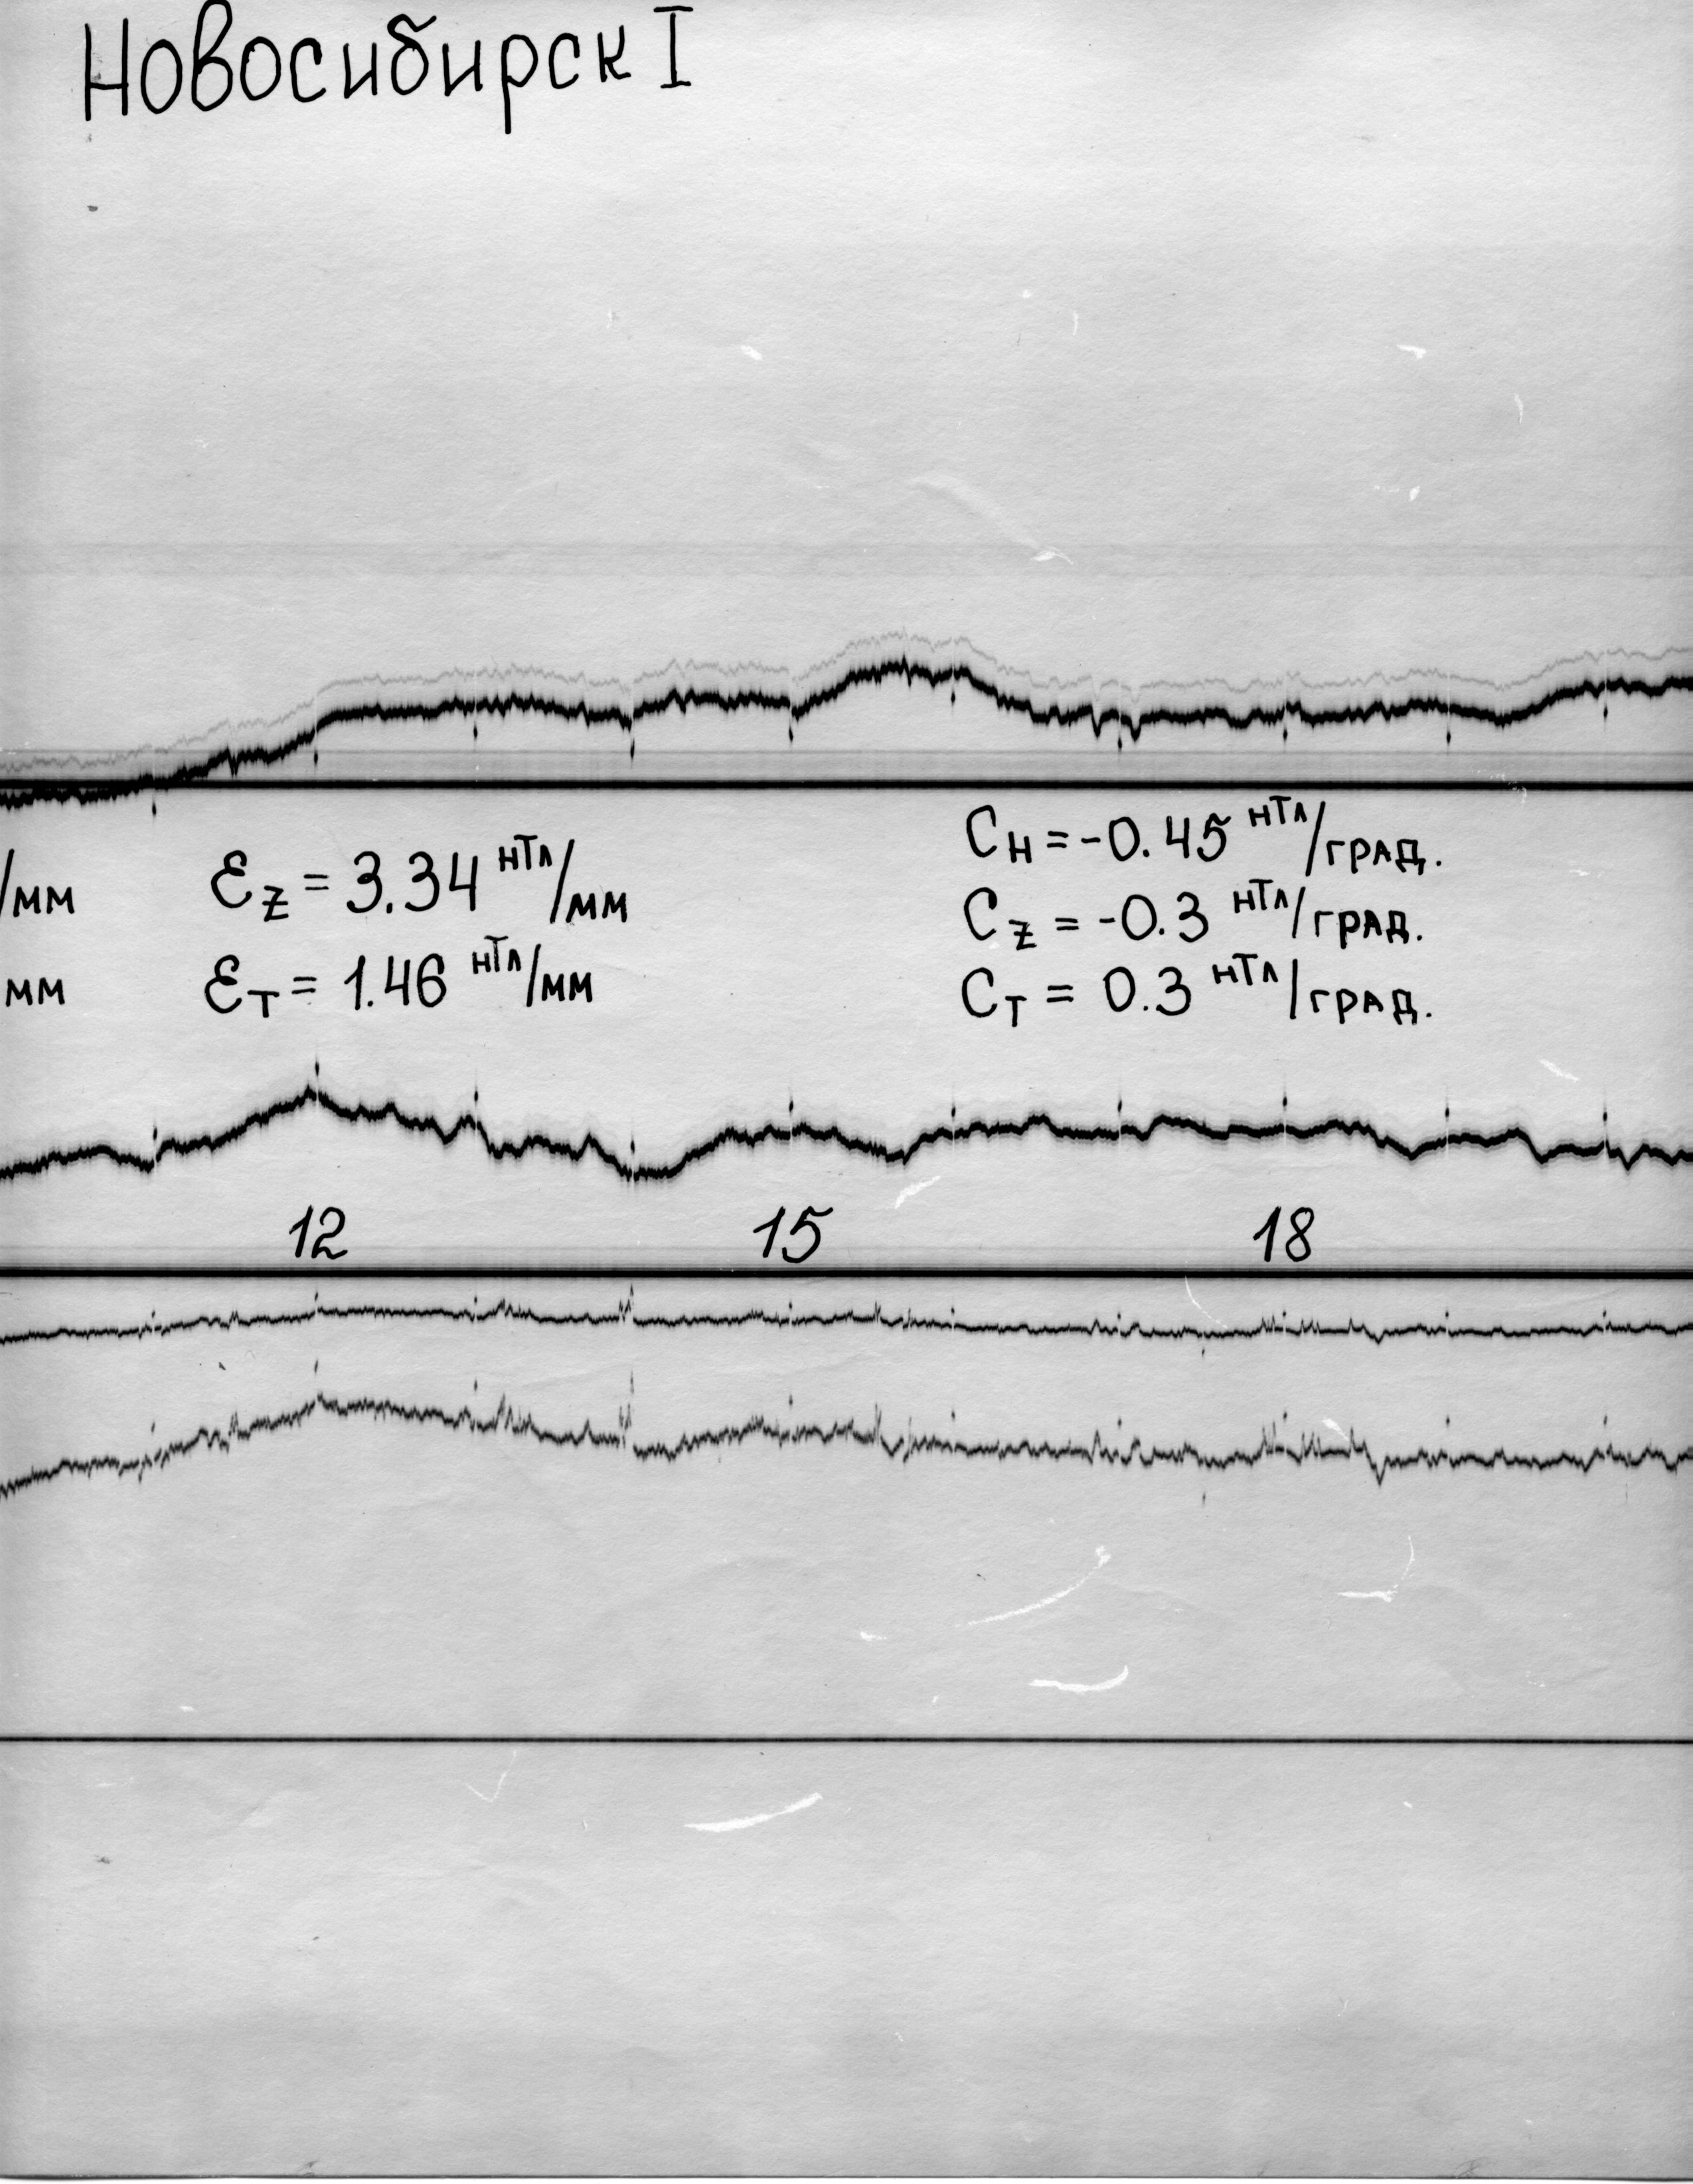 Новосибирск I
/мм ε_Z = 3.34 нТл/мм C_H = -0.45 нТл/град.
C_Z = -0.3 нТл/град.
мм ε_T = 1.46 нТл/мм C_T = 0.3 нТл/град.
12 15 18